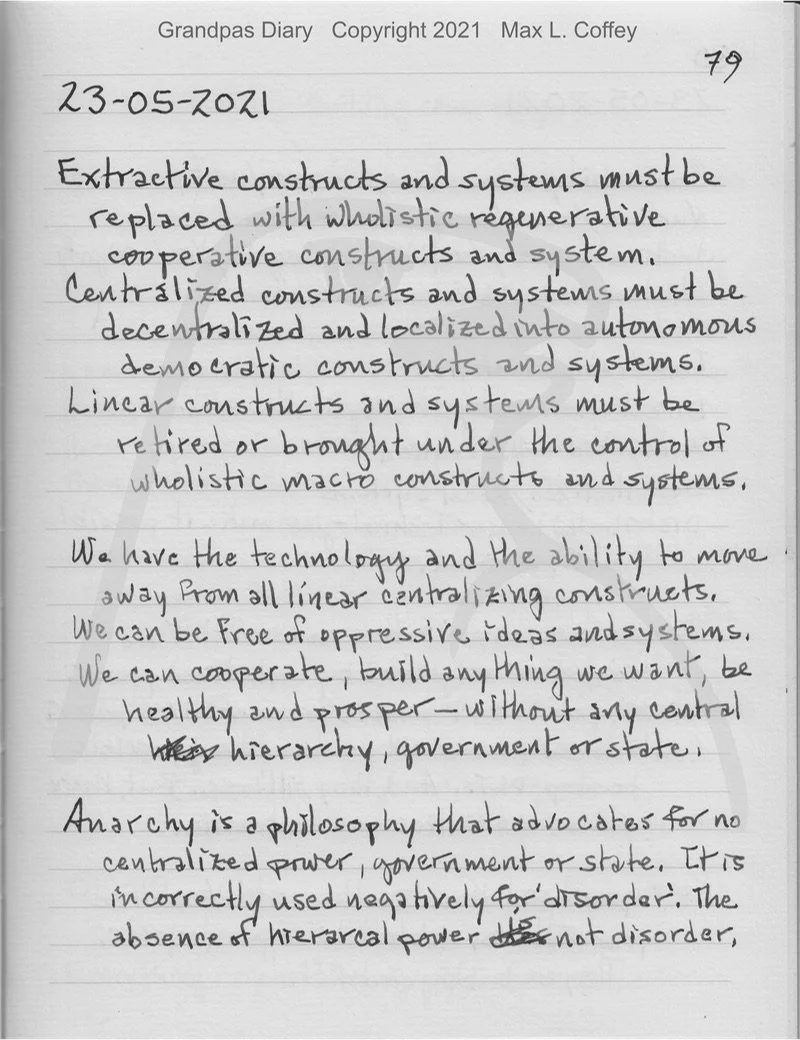 Grandpas Diary Copyright 2021 Max L. Coffey
79
23-05-2021
Extractive constructs and systems must be
replaced with wholistic regenerative
cooperative constructs and system.
Centralized constructs and systems must be
decentralized and localized into autonomous
democratic constructs and systems.
Linear constructs and systems must be
retired or brought under the control of
wholistic macro constructs and systems.
We have the technology and the ability to move
away from all linear centralizing constructs.
We can be free of oppressive ideas and systems.
We can cooperate, build anything we want, be
healthy and prosper—without any central
hierarchy, government or state.
Anarchy is a philosophy that advocates for no
centralized power, government or state. It is
incorrectly used negatively for 'disorder'. The
absence of hierarcal power is not disorder,